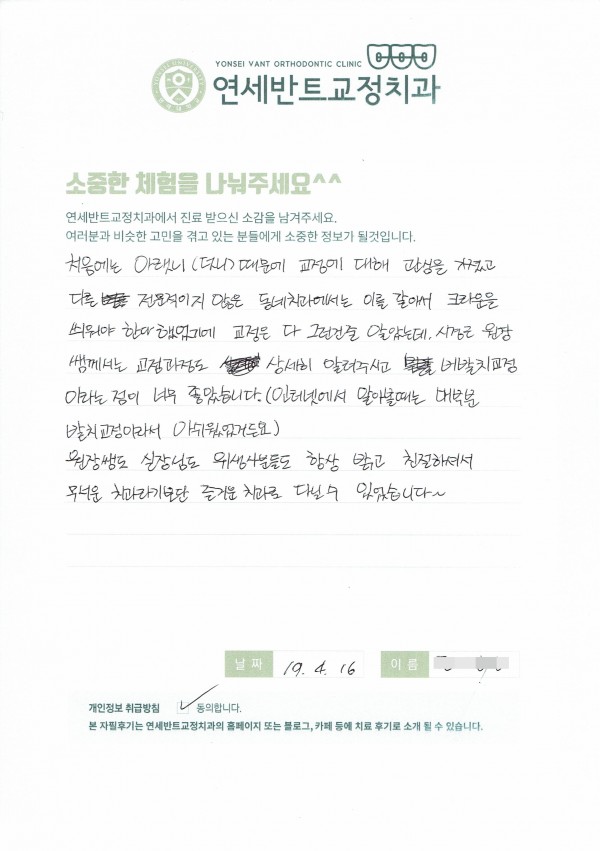 YONSEI VANT ORTHODONTIC CLINIC
연세반트교정치과
소중한 체험을 나눠주세요^^
연세반트교정치과에서 진료 받으신 소감을 남겨주세요.
여러분과 비슷한 고민을 겪고 있는 분들에게 소중한 정보가 될것입니다.
처음에는 아랫니(덧니)때문에 교정에 대해 관심을 가졌고
다른 전문적이지 않은 동네치과에서는 이를 갈아서 크라운을
씌워야 한다 했었기에 교정은 다 그런건줄 알았는데, 원장
쌤께서는 교정과정도 상세히 알려주시고 비발치교정
이라는 점이 너무 좋았습니다.(인터넷에서 알아볼때는 대부분
발치교정이라서 아쉬웠었거든요)
원장쌤도 실장님도 위생사분들도 항상 밝고 친절하셔서
무서운 치과라기보단 즐거운 치과로 다닐수 있었습니다~
날짜 19. 4. 16 이름
개인정보 취급방침 동의합니다.
본 자필후기는 연세반트교정치과의 홈페이지 또는 블로그, 카페 등에 치료 후기로 소개 될 수 있습니다.